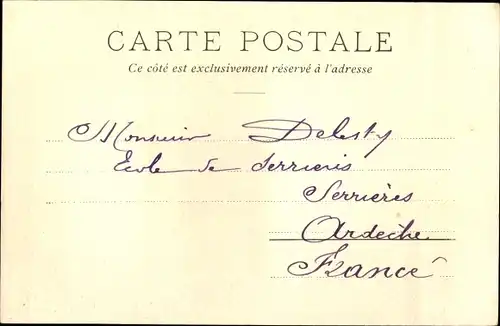 CARTE POSTALE
Ce côté est exclusivement réservé à l'adresse
Monsieur Delesty
Ecole de Serrieres
Serrières
Ardeche
France